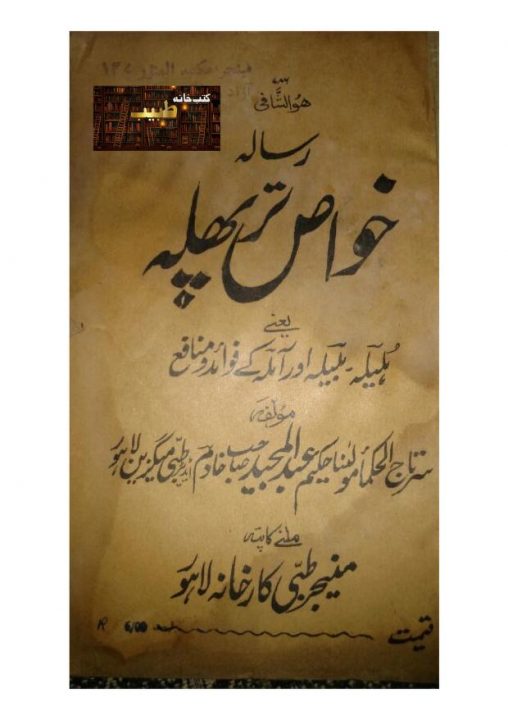 کتب خانہ
طبیب
۷۸۶
ھو الشافی
رسالہ
خواص تربھلہ
یعنے
ہلیلہ۔ بلیلہ اور آملہ کے فوائد و منافع
مؤلفہ
سرتاج الحکماء مولٰینا حکیم عبدالمجید صاحب خادم ایڈیٹر طبی میگزین لاہور
ملنے کا پتہ
منیجر طبّی کارخانہ لاہور
قیمت 6/00